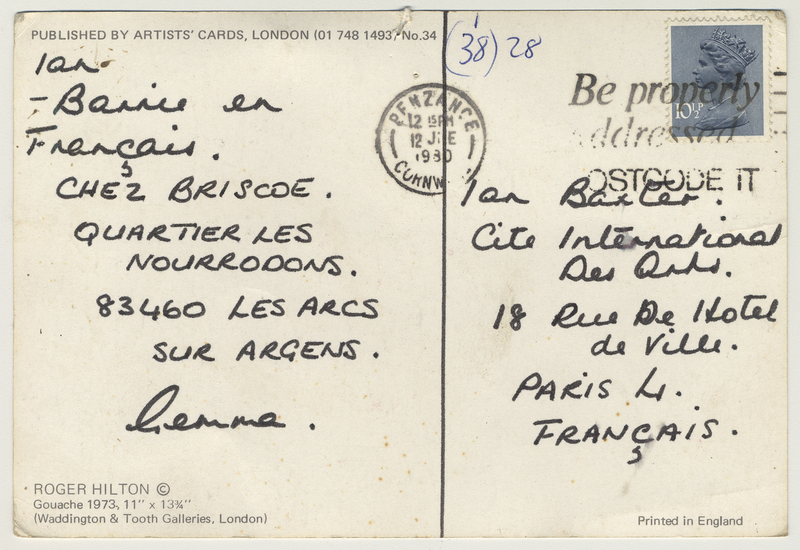 PUBLISHED BY ARTISTS' CARDS, LONDON (01 748 1493) No.34
(38) 28
Ian
- Barrie en
Français.
CHEZ BRISCOE.
QUARTIER LES
NOURRODONS.
83460 LES ARCS
SUR ARGENS.
Gemma.
ROGER HILTON ©
Gouache 1973, 11" x 13¾"
(Waddington & Tooth Galleries, London)
PENZANCE
12 15PM
12 JNE
1980
CORNW
10½P
Be properly
addressed
POSTCODE IT
Ian Baxter.
Cite International
Des Arts.
18 Rue De Hotel
de Ville.
PARIS 4.
FRANÇAIS.
Printed in England